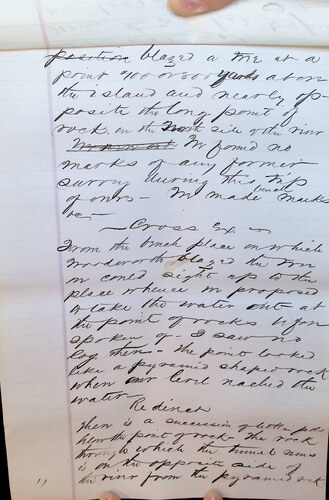 position blazed a tree at a
point 400 or 500 yards above
the island and nearly op-
posite the long point of
rock on the North side of the river
We found no
marks of any former
survey during this trip
of ours — We made bench marks
&c —
— Cross Ex. —
From the bench place on which
Wordsworth blazed the tree
we could sight up to the
place whence we proposed
to take the water out at
the point of rocks before
spoken of — I saw no
log then — The point looked
like a pyramid shaped rock
when our level reached the
water
Re direct
There is a succession of
below the point of rock — The rock
through which the tunnel runs
is on the opposite side of
the river from the pyramid rock
11